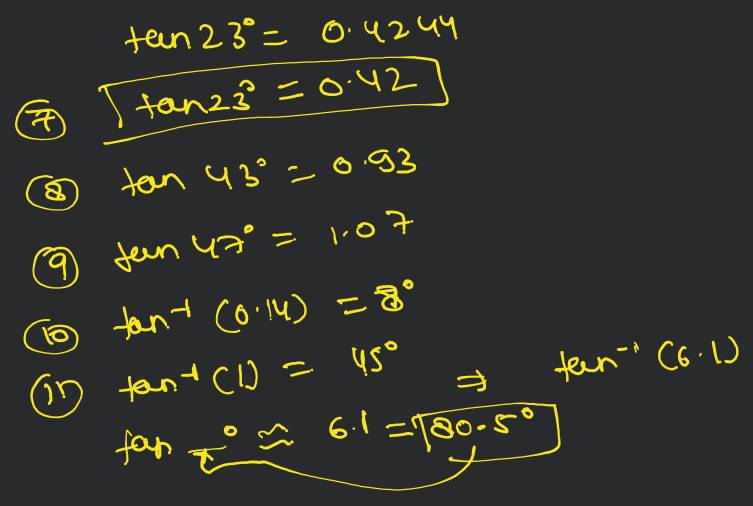 tan 23° = 0.4244
⑦ tan 23° = 0.42
⑧ tan 43° = 0.93
⑨ tan 47° = 1.07
⑩ tan⁻¹ (0.14) = 8°
⑪ tan⁻¹ (1) = 45° ⇒ tan⁻¹ (6.1)
tan _° ≈ 6.1 = 80.5°